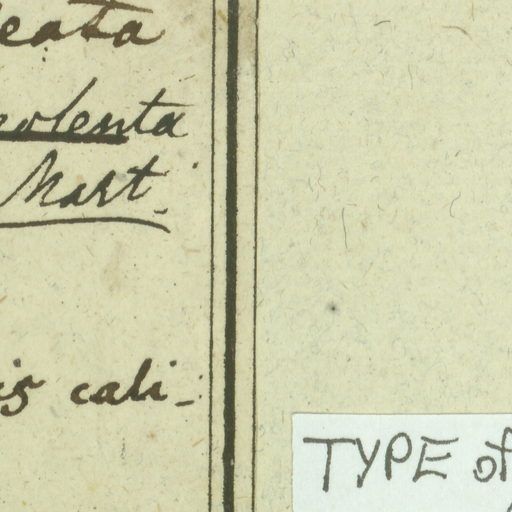 eata
eolenta
Mart.
is cali-
TYPE of